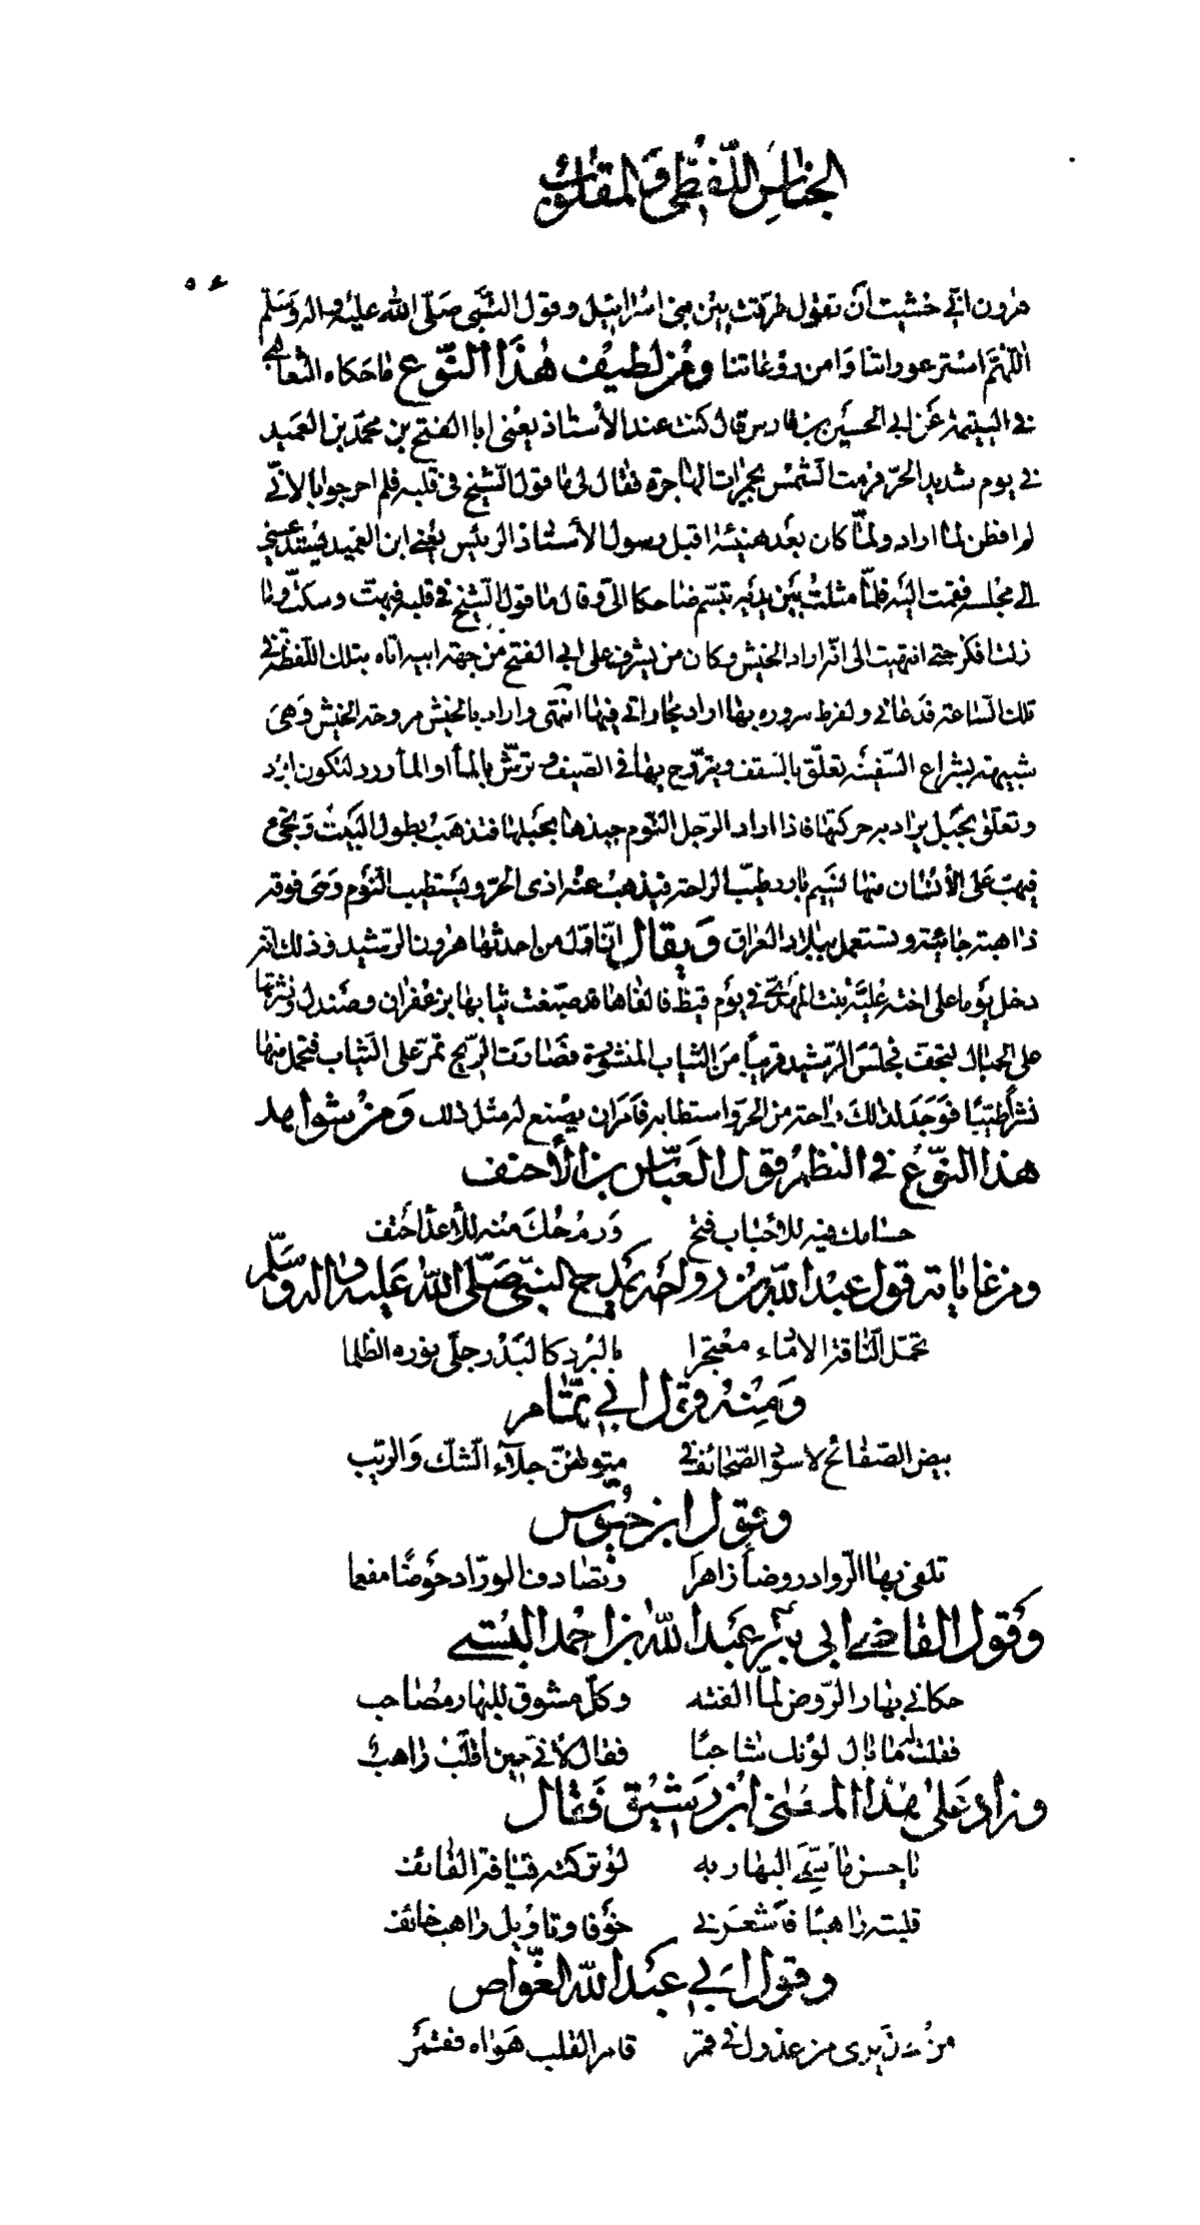 الجناس اللفظي والمقلوب
٥٤
هرون اني خشيت أن تقول فرقت بين بني اسرائيل وقول النبي صلى الله عليه واله وسلم
اللهم استر عوراتنا وامن روعاتنا ومن لطيف هذا النوع ما حكاه الثعالبي
في اليتيمة عن ابي الحسين بن فارس قال كنت عند الأستاذ يعني ابا الفتح بن محمد بن العميد
في يوم شديد الحر فرمت الشمس بجمرات الهاجرة فقال لي ما قول الشيخ في قلبه فلم احر جوابا لاني
لم افطن لما اراد ولما كان بعد هنيئة اقبل رسول الأستاذ الرئيس يعني ابن العميد يستدعيني
الى مجلسه فقمت اليه فلما مثلت بين يديه تبسم ضاحكا الي وقال ما قول الشيخ في قلبه فبهت وسكت وما
زلت افكر حتى انتهيت الى انه اراد الخيش وكان من يشرف على ابي الفتح من جهة ابيه اتاه بتلك اللفظة في
تلك الساعة فدعاني ولفرط سروره بها اراد مجاراتي فيها انتهى واراد بالخيش مروحة الخيش وهي
شبيهة بشراع السفينة تعلق بالسقف ويتروح بها في الصيف وترش بالمأ او المأ ورد لتكون ابرد
وتعلق بحبل يراد به حركتها فاذا اراد الرجل النوم جبذها بحبلها فتذهب بطول البيت وتجيء
فيهب على الأنسان منها نسيم بارد طيب الراحة فيذهب عنه اذى الحر ويستطيب النوم وهي فوقه
ذاهبة جائية وتستعمل ببلاد العراق ويقال ان اول من احدثها هرون الرشيد وذلك انه
دخل يوما على اخته علية بنت المهدي في يوم قيظ فالفاها قد صبغت ثيابها بزعفران وصندل ونشرتها
على الحبال لتجف فجلس الرشيد قريبا من الثياب المنشورة فصارت الريح تمر على الثياب فتحمل منها
نشرا طيبا فوجد لذلك راحة من الحر واستطابه فأمر ان يصنع له مثل ذلك ومن شواهد
هذا النوع في النظم قول العباس بن الأحنف
حسامك فيه للأحباب فتح ورمحك منه للأعدا حتف
ومن غاياته قول عبد الله بن رواحة يمدح النبي صلى الله عليه واله وسلم
تحمل الناقة الادماء معتجرا بالبرد كالبدر جلى بنوره الظلما
ومنه قول ابي تمام
بيض الصفائح لا سود الصحائف في متونهن جلاء الشك والريب
وقول ابن حيوس
تلقى بها الرواد روضا زاهرا وتصادف الوراد حوضا مفعما
وقول القاضي ابي بكر عبد الله بن احمد البستي
حكاني بهار الروض لما الفته وكل مشوق للبهار مصاحب
فقلت له ما بال لونك شاحبا فقال لأني حين أقلب راهب
وزاد على هذا المعنى ابن رشيق فقال
يا حسن ما يتم البهار به لو تركته قيافة القائف
قلبته راهبا فأشعرني خوفا وتاويل راهب خائف
وقول ابي عبد الله الغواص
من عذيري من عذول في قمر قامر القلب هواه فقمر